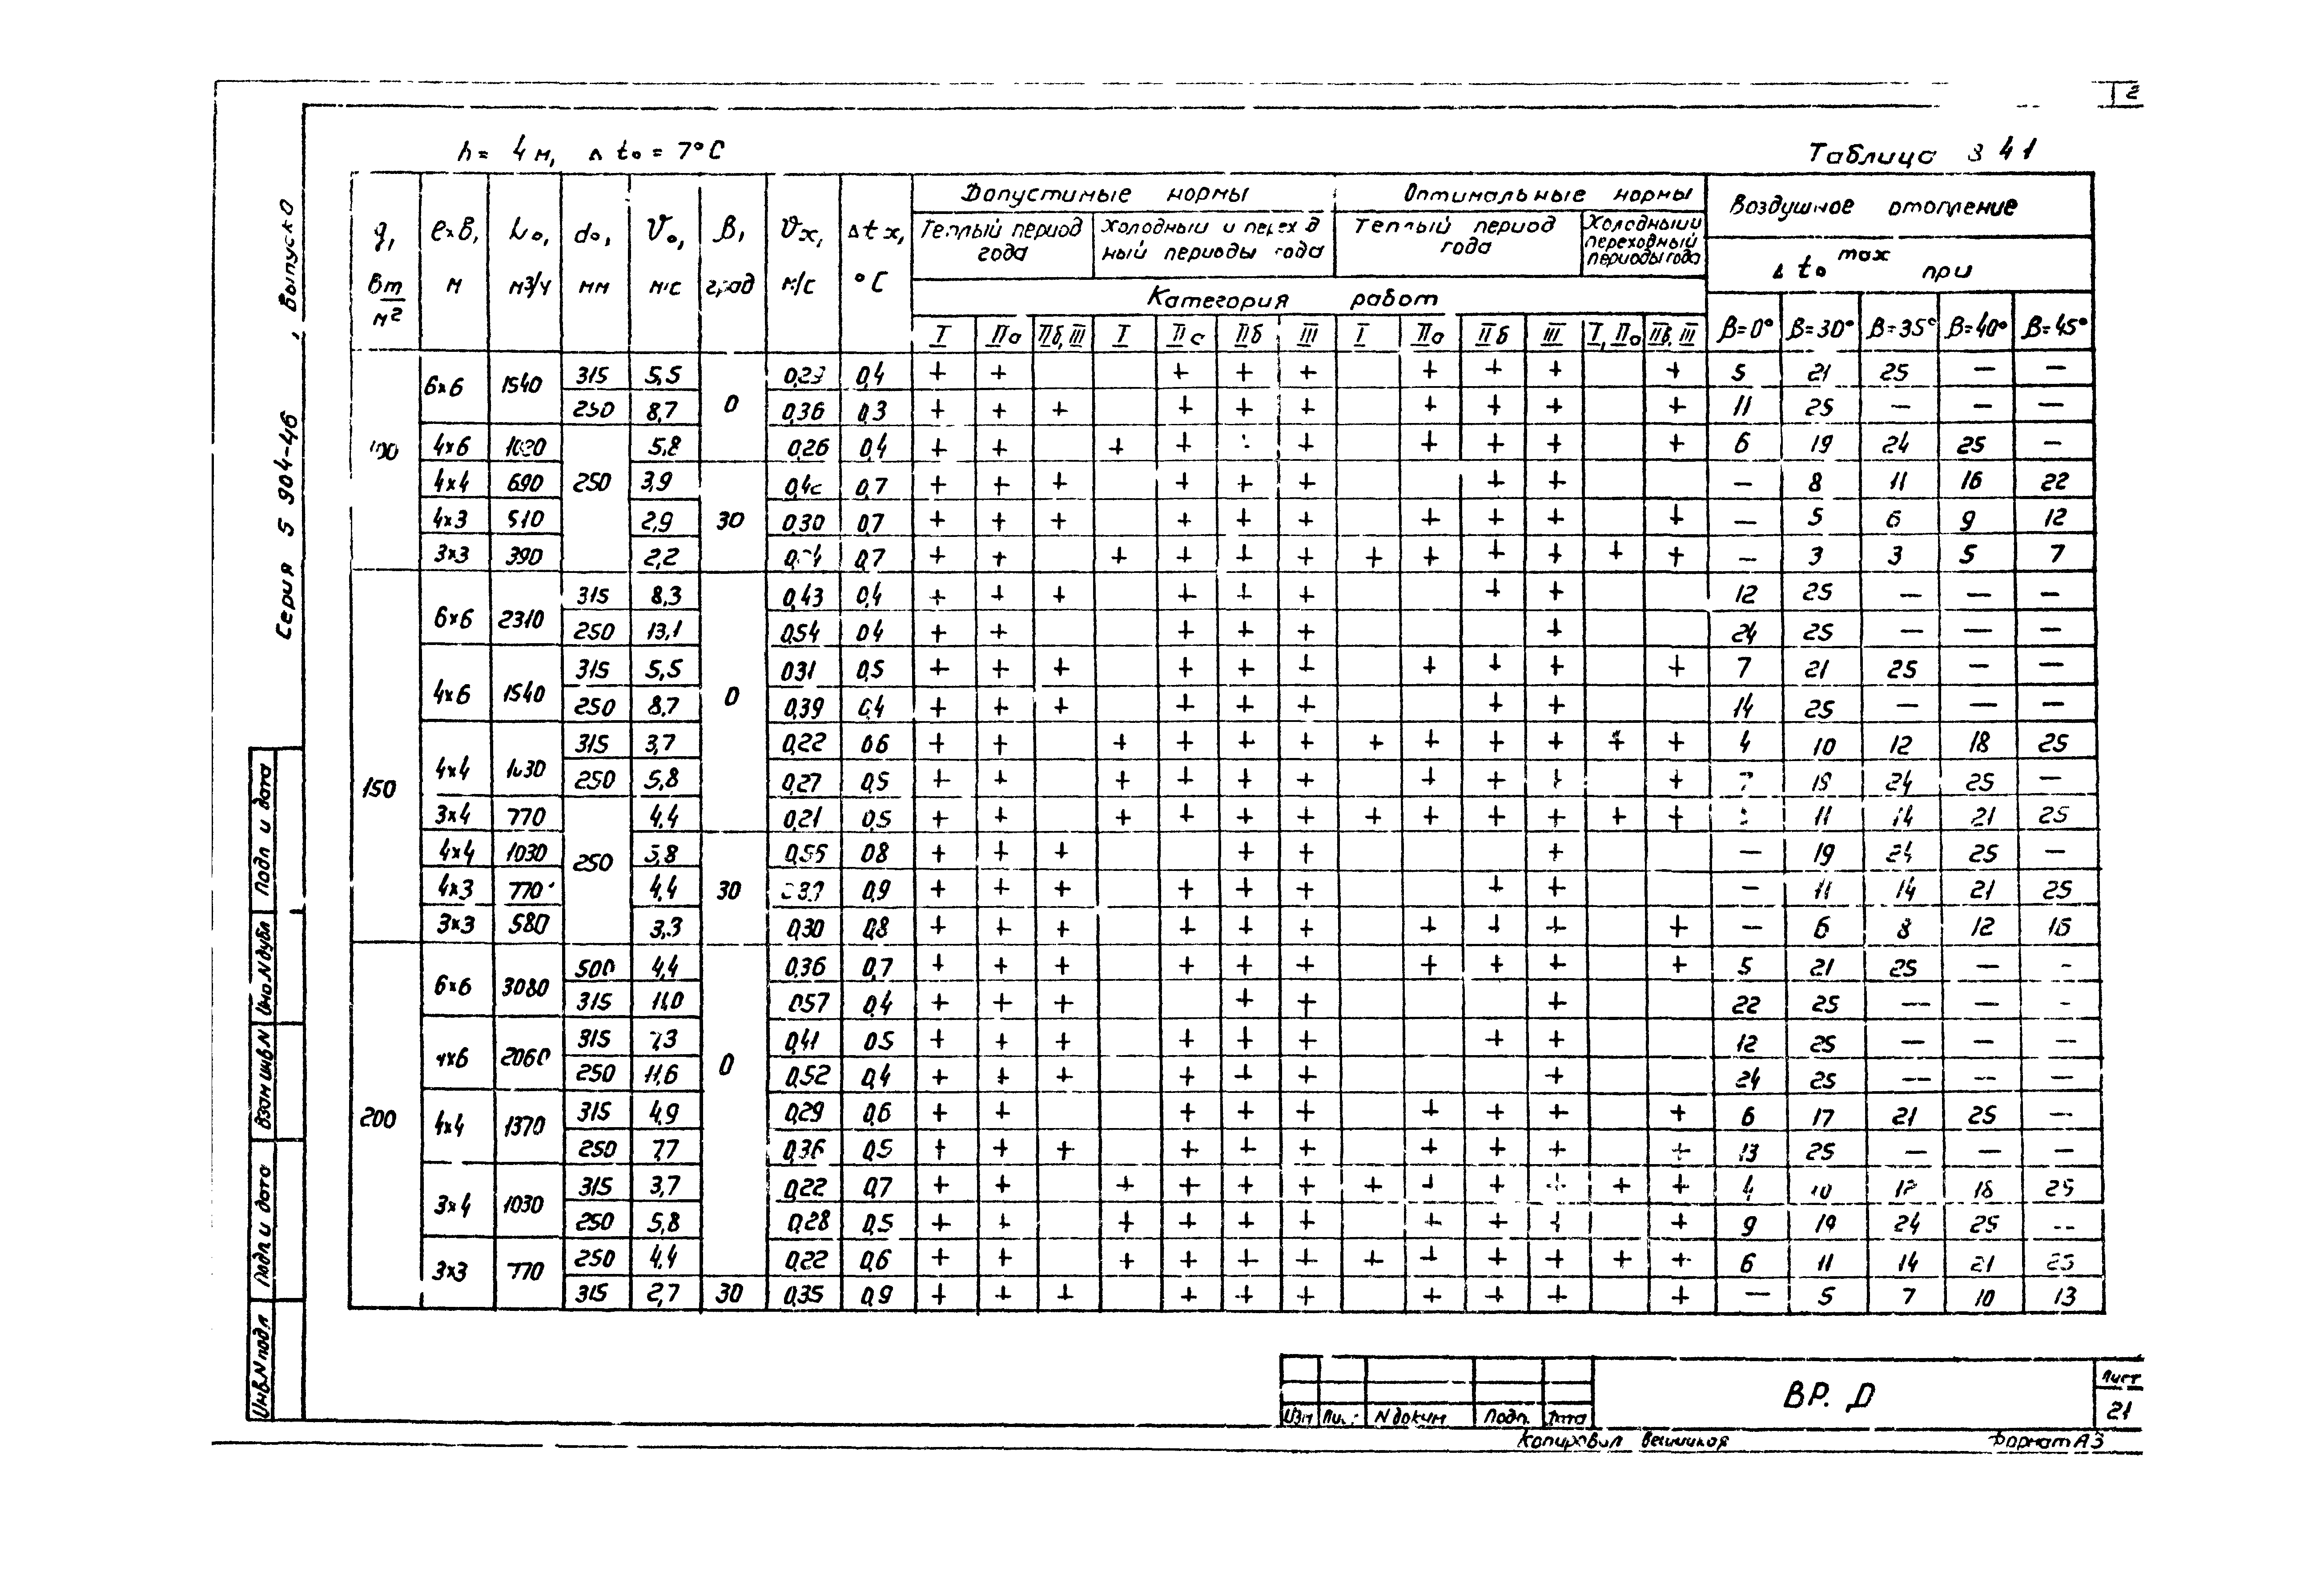 2
h = 4 м, Δ t₀ = 7°C
Таблица 3 4 1
q, Вт/м² | е×в, м | L₀, м3/ч | d₀, мм | V₀, м/с | β, град | Vx, м/с | Δtx, °C | Допустимые нормы | Оптимальные нормы | Воздушное отопление
Теплый период года | Холодный и перех д ный периоды года | Теплый период года | Холодный переходный периоды года | Δ t₀ max при
Категория работ
I | IIа | IIб, III | I | IIа | IIб | III | I | IIа | IIб | III | I, IIа | IIб, III | β=0° | β=30° | β=35° | β=40° | β=45°
100 | 6×6 | 1540 | 315 | 5,5 | 0 | 0,29 | 0,4 | + | + | | | + | + | + | | + | + | + | | + | 5 | 21 | 25 | — | —
250 | 8,7 | 0,36 | 0,3 | + | + | + | | + | + | + | | + | + | + | | + | 11 | 25 | — | — | —
4×6 | 1030 | 250 | 5,8 | 0,26 | 0,4 | + | + | | + | + | | + | | + | + | + | | + | 6 | 19 | 24 | 25 | —
4×4 | 690 | 3,9 | 30 | 0,7 | + | + | + | | + | + | + | | | + | + | | | — | 8 | 11 | 16 | 22
4×3 | 510 | 2,9 | 0,30 | 0,7 | + | + | + | | + | + | + | | + | + | + | | + | — | 5 | 6 | 9 | 12
3×3 | 390 | 2,2 | 0,7 | + | + | | + | + | + | + | + | + | + | + | + | + | — | 3 | 3 | 5 | 7
150 | 6×6 | 2310 | 315 | 8,3 | 0 | 0,43 | 0,4 | + | + | + | | + | + | + | | | + | + | | | 12 | 25 | — | — | —
250 | 13,1 | 0,54 | 0,4 | + | + | | | + | + | + | | | | + | | | 24 | 25 | — | — | —
4×6 | 1540 | 315 | 5,5 | 0,31 | 0,5 | + | + | + | | + | + | + | | + | + | + | | + | 7 | 21 | 25 | — | —
250 | 8,7 | 0,39 | 0,4 | + | + | + | | + | + | + | | | + | + | | | 14 | 25 | — | — | —
4×4 | 1030 | 315 | 3,7 | 0,22 | 0,6 | + | + | | + | + | + | + | + | + | + | + | + | + | 4 | 10 | 12 | 18 | 25
250 | 5,8 | 0,27 | 0,5 | + | + | | + | + | + | + | | + | + | + | | + | 7 | 19 | 24 | 25 | —
3×4 | 770 | 250 | 4,4 | 0,21 | 0,5 | + | + | | + | + | + | + | + | + | + | + | + | + | | 11 | 14 | 21 | 25
4×4 | 1030 | 5,8 | 30 | 0,55 | 0,8 | + | + | + | | | + | + | | | | + | | | — | 19 | 24 | 25 | —
4×3 | 770 | 4,4 | 0,39 | 0,9 | + | + | + | | + | + | + | | | + | + | | | — | 11 | 14 | 21 | 25
3×3 | 580 | 3,3 | 0,30 | 0,8 | + | + | + | | + | + | + | | + | + | + | | + | — | 6 | 8 | 12 | 16
200 | 6×6 | 3080 | 500 | 4,4 | 0 | 0,36 | 0,7 | + | + | + | | + | + | + | | + | + | + | | + | 5 | 21 | 25 | — | -
315 | 11,0 | 0,57 | 0,4 | + | + | + | | | + | + | | | | + | | | 22 | 25 | — | — | -
4×6 | 2060 | 315 | 7,3 | 0,41 | 0,5 | + | + | + | | + | + | + | | | + | + | | | 12 | 25 | — | — | —
250 | 11,6 | 0,52 | 0,4 | + | + | + | | + | + | + | | | | + | | | 24 | 25 | — | — | —
4×4 | 1370 | 315 | 4,9 | 0,29 | 0,6 | + | + | | | + | + | + | | + | + | + | | + | 6 | 17 | 21 | 25 | —
250 | 7,7 | 0,36 | 0,5 | + | + | + | | + | + | + | | + | + | + | | + | 13 | 25 | — | — | —
3×4 | 1030 | 315 | 3,7 | 0,22 | 0,7 | + | + | | + | + | + | + | + | + | + | + | + | + | 4 | 10 | 12 | 18 | 25
250 | 5,8 | 0,28 | 0,5 | + | + | | + | + | + | + | | + | + | + | | + | 9 | 19 | 24 | 25 | —
3×3 | 770 | 250 | 4,4 | 0,22 | 0,6 | + | + | | + | + | + | + | + | + | + | + | + | + | 6 | 11 | 14 | 21 | 25
315 | 2,7 | 30 | 0,35 | 0,9 | + | + | + | | + | + | + | | + | + | + | | + | — | 5 | 7 | 10 | 13
Серия 5 904-46 , Выпуск 0
Инв.N подл | Подп и дата | Взам инв.N | Инв.N дубл | Подп и дата
Изм | Лис | N докум | Подп. | Дата
ВР. Д
Лист
21
Копировал
Формат А3